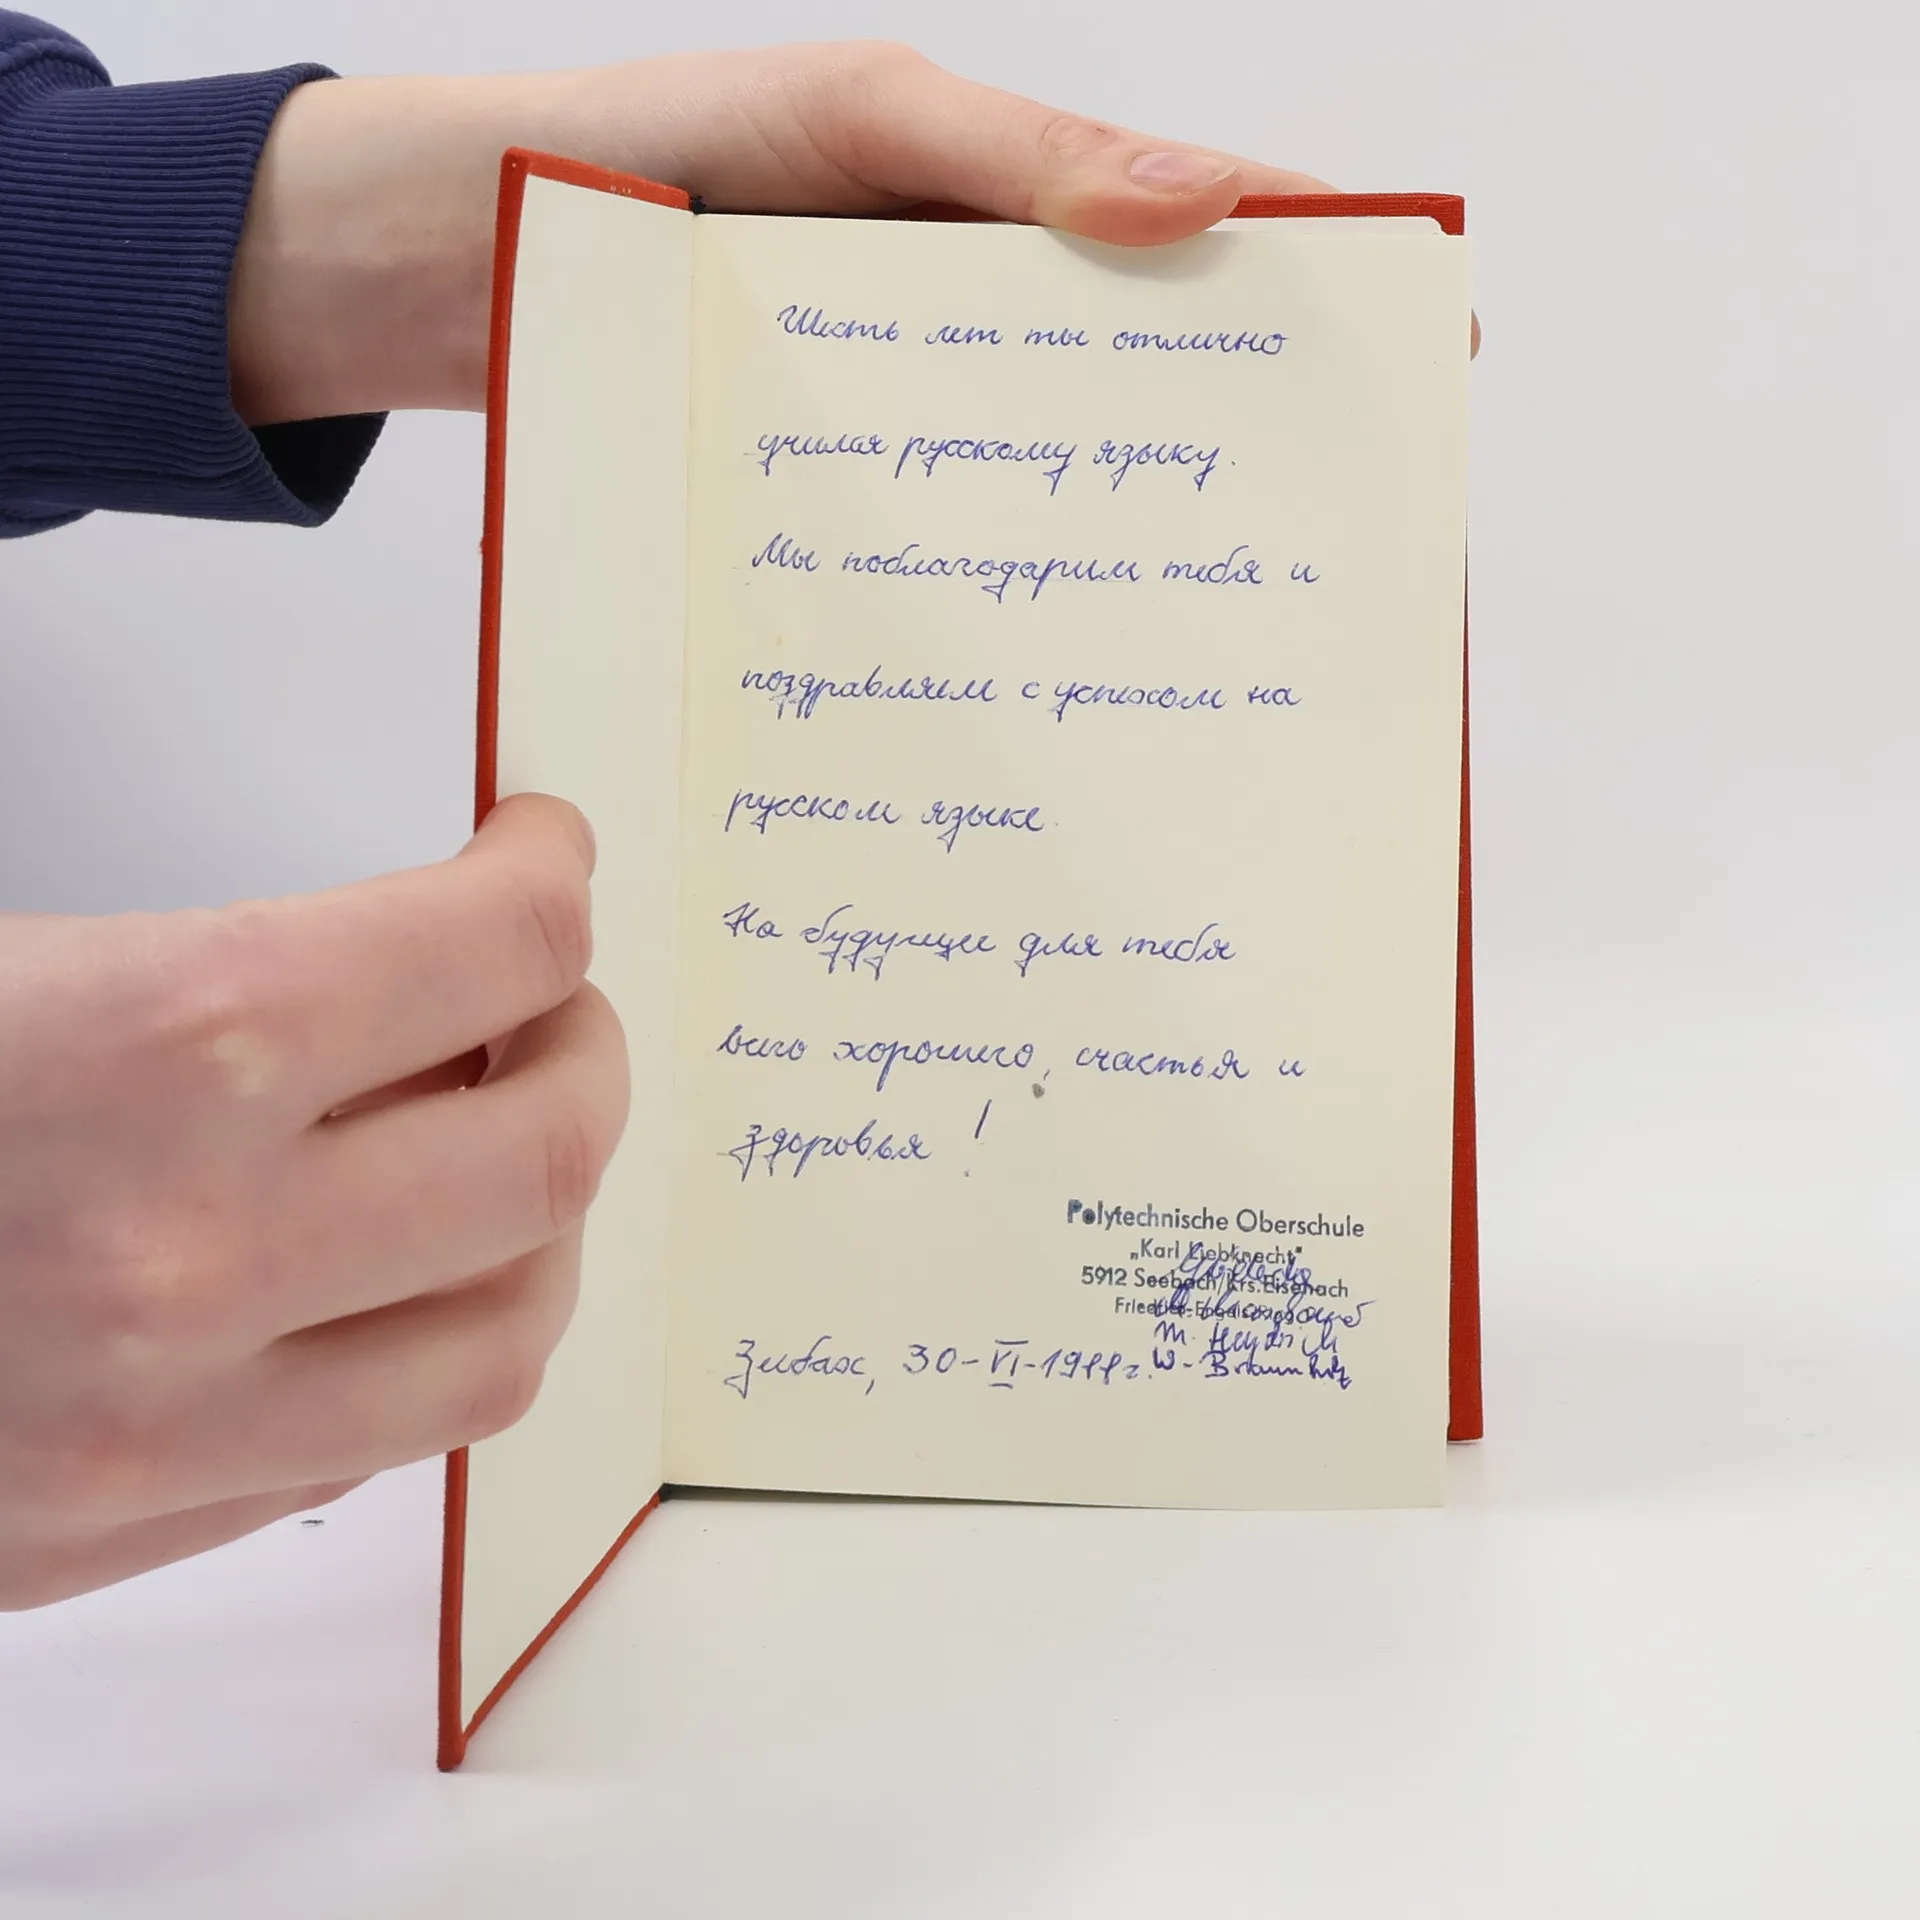 Шесть лет ты отлично
учился русскому языку.
Мы поблагодарим тебя и
поздравляем с успехом на
русском языке.
На будущее для тебя
всего хорошего, счастья и
здоровья!
Polytechnische Oberschule
„Karl Liebknecht"
5912 Seebach/Krs. Eisenach
Зибах, 30-VI-1988г.